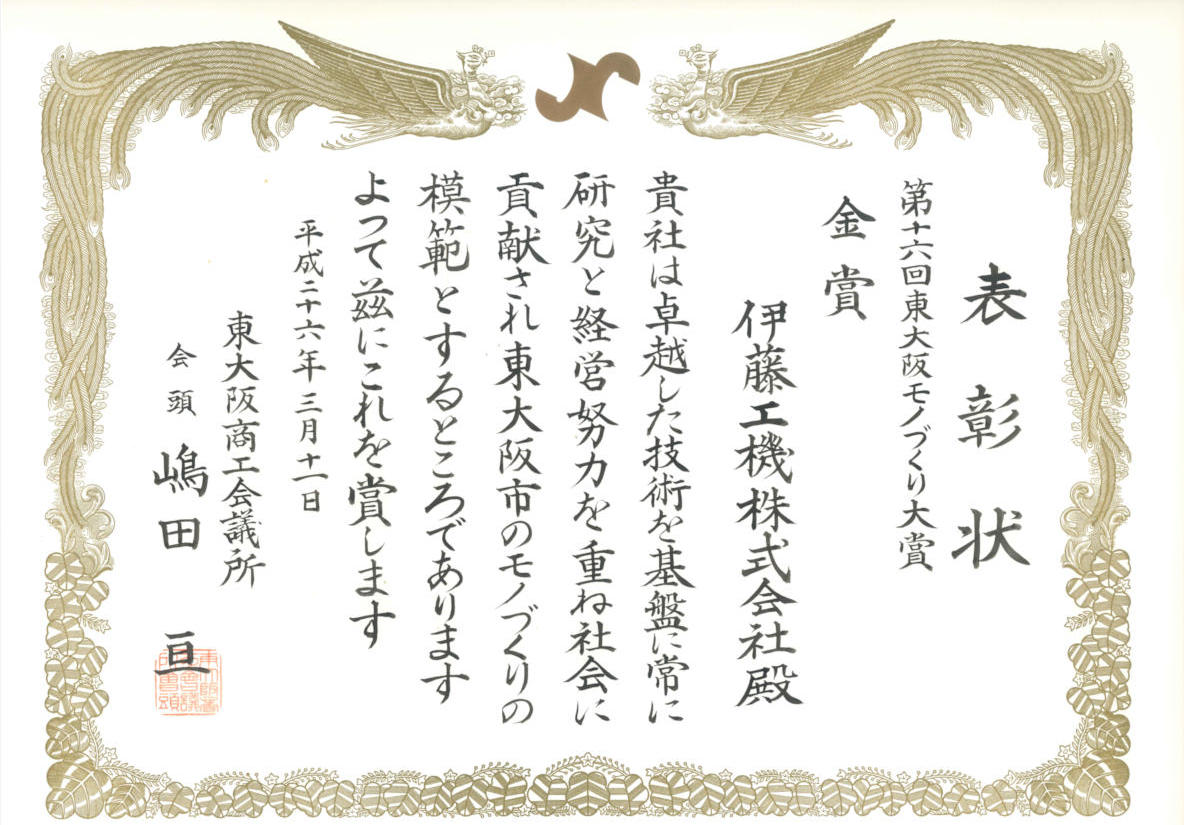 表彰状
第十六回東大阪モノづくり大賞
金賞
伊藤工機株式会社殿
貴社は卓越した技術を基盤に常に
研究と経営努力を重ね社会に
貢献され東大阪市のモノづくりの
模範とするところであります
よって茲にこれを賞します
平成二十六年三月十一日
東大阪商工会議所
会頭 嶋田 亘